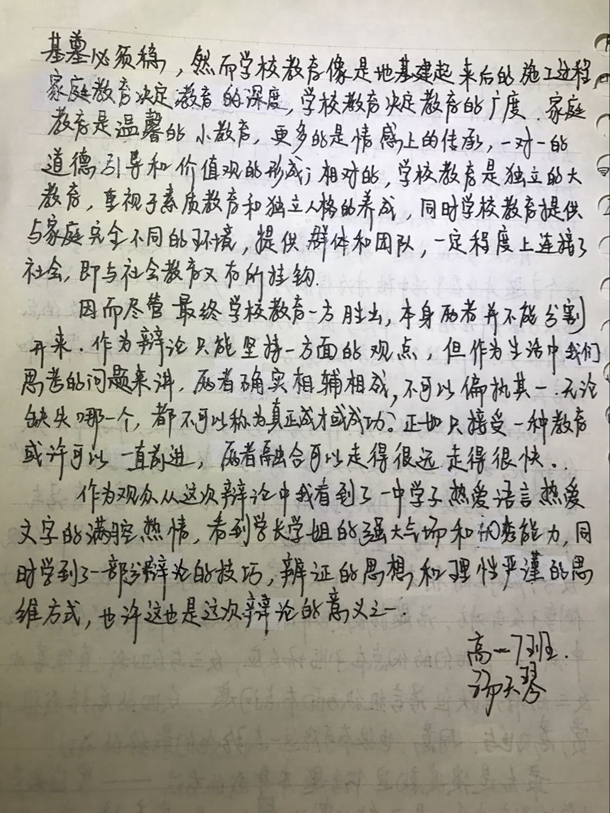 基墓必须稳，然而学校教育像是地基建起来后的施工过程
家庭教育决定教育的深度，学校教育决定教育的广度．家庭
教育是温馨的小教育，更多的是情感上的传承，一对一的
道德引导和价值观的形成；相对的，学校教育是独立的大
教育，重视于素质教育和独立人格的养成，同时学校教育提供
与家庭完全不同的环境，提供群体和团队，一定程度上连接了
社会，即与社会教育又有所挂钩．
因而尽管最终学校教育一方胜出，本身两者并不能分割
开来．作为辩论只能坚持一方面的观点，但作为生活中我们
思考的问题来讲，两者确实相辅相成，不可以偏执其一．无论
缺失哪一个，都不可以称为真正成才或成功．正如只接受一种教育
或许可以一直前进，两者融合可以走得很远走得很快．．
作为观众从这次辩论中我看到了一中学子热爱语言热爱
文字的满腔热情，看到学长学姐的强大气场和应变能力，同
时学到了一部分辩论的技巧，辩证的思想和理性严谨的思
维方式，也许这也是这次辩论的意义之一．
高一7班．
天琴